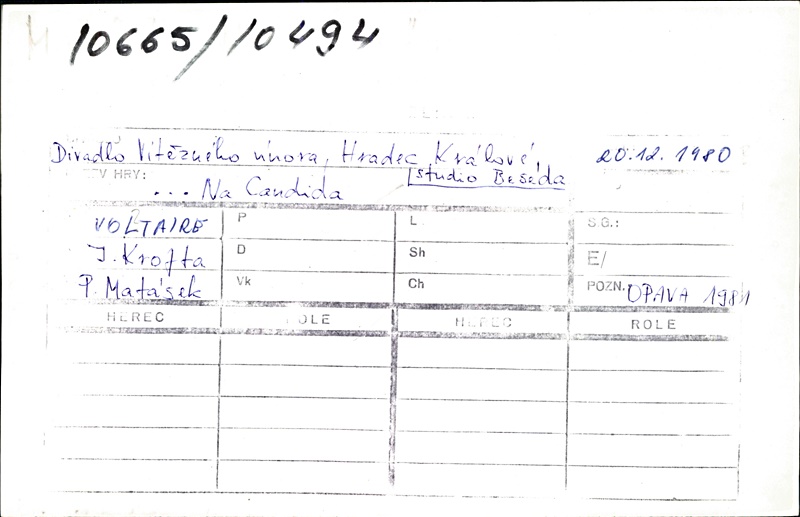 10665/10494
Divadlo Vítězného února, Hradec Králové, 20.12.1980
V HRY: studio Beseda
... Na Candida
VOLTAIRE P L S.G.:
J. Krofta D Sh E/
P. Matásek Vk Ch POZN. OPAVA 1981
HEREC ROLE HEREC ROLE